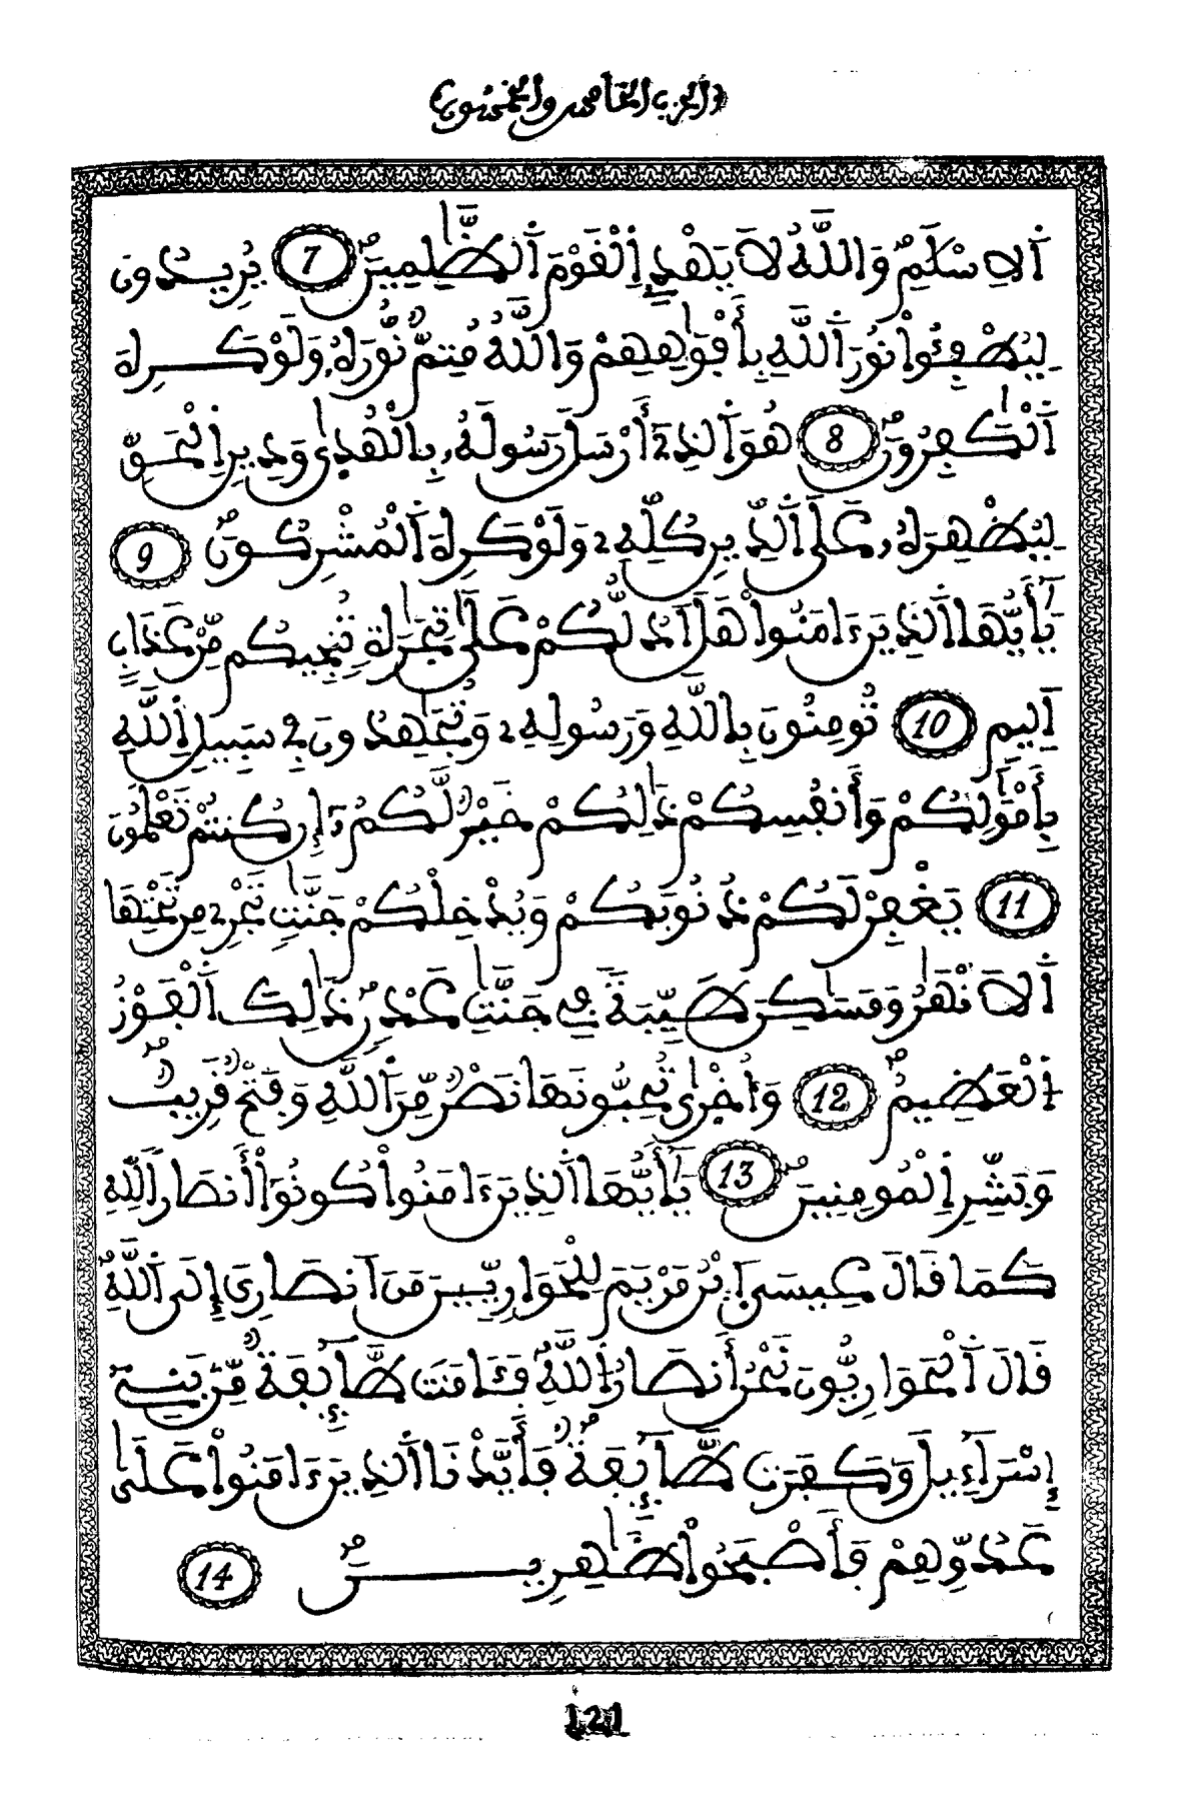 (الحزب الخامس والخمسون)
اَلِاسْلَٰمِ وَاللَّهُ لَا يَهْدِے اِلْقَوْمَ اَلظَّٰلِمِينَ 7 يُرِيدُونَ
لِيُطْفِـُٔواْ نُورَ اَللَّهِ بِأَفْوَٰهِهِمْ وَاللَّهُ مُتِمٌّ نُّورَهُۥ وَلَوْ كَرِهَ
اَلْكَٰفِرُونَ 8 هُوَ اَلذِےٓ أَرْسَلَ رَسُولَهُۥ بِالْهُدَىٰ وَدِينِ اِلْحَقِّ
لِيُظْهِرَهُۥ عَلَى اَلدِّينِ كُلِّهِۦ وَلَوْ كَرِهَ اَلْمُشْرِكُونَ 9
يَٰٓأَيُّهَا اَلذِينَ ءَامَنُواْ هَلَ اَدُلُّكُمْ عَلَىٰ تِجَٰرَةٖ تُنجِيكُم مِّنْ عَذَابٍ
اَلِيمٖ 10 تُومِنُونَ بِاللَّهِ وَرَسُولِهِۦ وَتُجَٰهِدُونَ فِے سَبِيلِ اِللَّهِ
بِأَمْوَٰلِكُمْ وَأَنفُسِكُمْ ذَٰلِكُمْ خَيْرٌ لَّكُمُۥٓ إِن كُنتُمْ تَعْلَمُونَ
11 يَغْفِرْ لَكُمْ ذُنُوبَكُمْ وَيُدْخِلْكُمْ جَنَّٰتٖ تَجْرِے مِن تَحْتِهَا
اَلَانْهَٰرُ وَمَسَٰكِنَ طَيِّبَةٗ فِے جَنَّٰتِ عَدْنٖ ذَٰلِكَ اَلْفَوْزُ
اُلْعَظِيمُ 12 وَأُخْرَىٰ تُحِبُّونَهَا نَصْرٌ مِّنَ اَللَّهِ وَفَتْحٌ قَرِيبٌ
وَبَشِّرِ اِلْمُومِنِينَ 13 يَٰٓأَيُّهَا اَلذِينَ ءَامَنُواْ كُونُوٓاْ أَنصَاراٗ لِّلهِ
كَمَا قَالَ عِيسَى اَبْنُ مَرْيَمَ لِلْحَوَارِيِّـۧنَ مَنَ اَنصَارِيَ إِلَى اَللَّهِ
قَالَ اَلْحَوَارِيُّونَ نَحْنُ أَنصَارُ اُللَّهِ فَـَٔامَنَت طَّآئِفَةٌ مِّنۢ بَنِےٓ
إِسْرَآءِيلَ وَكَفَرَت طَّآئِفَةٌ فَأَيَّدْنَا اَلذِينَ ءَامَنُواْ عَلَىٰ
عَدُوِّهِمْ فَأَصْبَحُواْ ظَٰهِرِينَ 14
121